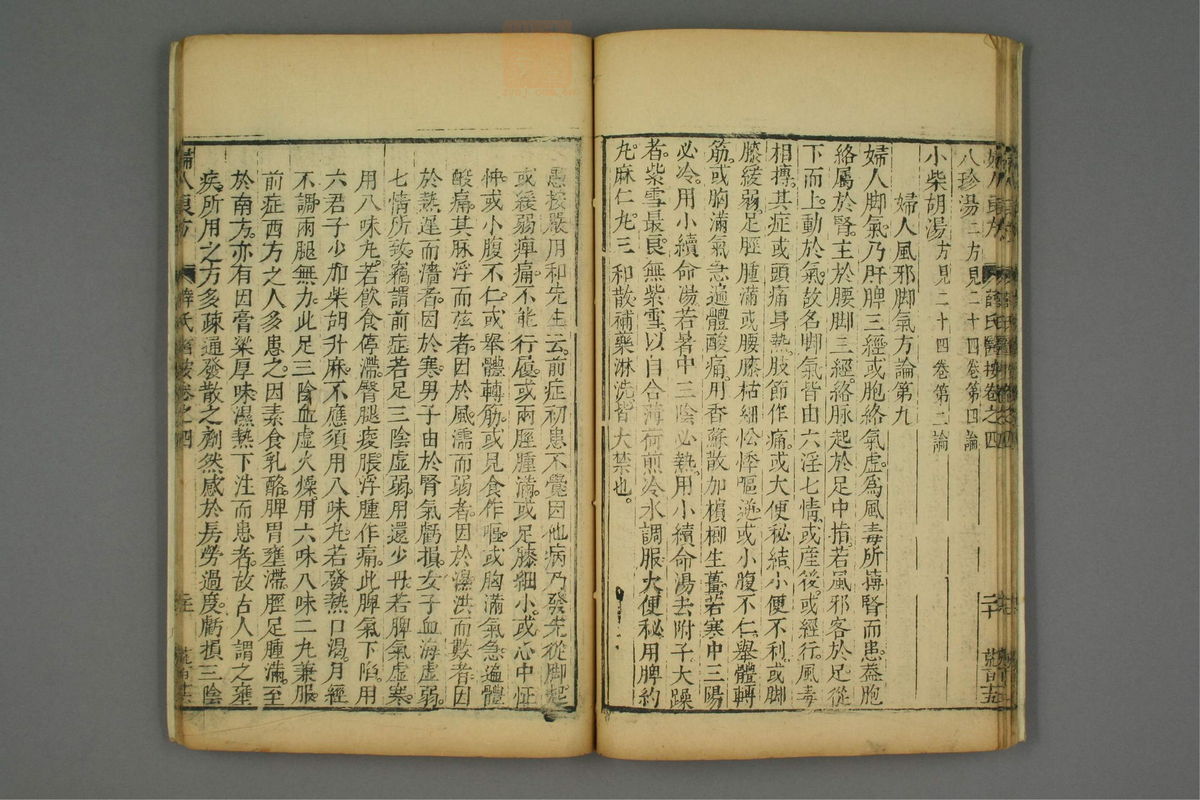 婦人良方 薛氏醫按卷之四 二十
八珍湯二方見二十四卷第四論
小柴胡湯方見二十四卷第二論
婦人風邪脚氣方論第九
婦人脚氣乃肝脾三經或胞絡氣虛爲風毒所搏腎而患葢胞
絡屬於腎主於腰脚三經絡脉起於足中指若風邪客於足從
下而上動於氣故名脚氣皆由六淫七情或産後或經行風毒
相搏其症或頭痛身熱肢節作痛或大便秘結小便不利或脚
膝緩弱足脛腫滿或腰膝枯細忪悸嘔逆或小腹不仁舉體轉
筋或胸滿氣急遍體酸痛用香蘇散加檳榔生薑若寒中三陽
必冷用小續命湯若暑中三陰必熱用小續命湯去附子大躁
者紫雪最良無紫雪以自合薄荷煎冷水調服大便秘用脾約
丸麻仁丸三和散補藥淋洗皆大禁也
愚按嚴用和先生云前症初患不覺因他病乃發先從脚起
或緩弱痺痛不能行履或兩脛腫滿或足膝細小或心中怔
忡或小腹不仁或舉體轉筋或見食作嘔或胸滿氣急遍體
酸痛其脉浮而弦者因於風濡而弱者因於濕洪而數者因
於熱遲而濇者因於寒男子由於腎氣虧損女子血海虛弱
七情所致竊謂前症若足三陰虛弱用還少丹若脾氣虛寒
用八味丸若飲食停滯臀腿痠脹浮腫作痛此脾氣下陷用
六君子少加柴胡升麻不應須用八味丸若發熱口渴月經
不調兩腿無力此足三陰血虛火燥用六味八味二丸兼服
前症西方之人多患之因素食乳酪脾胃壅滯脛足腫滿至
於南方亦有因膏粱厚味濕熱下注而患者故古人謂之壅
疾所用之方多疎通發散之劑然感於房勞過度虧損三陰
婦人良方 薛氏醫按卷之四